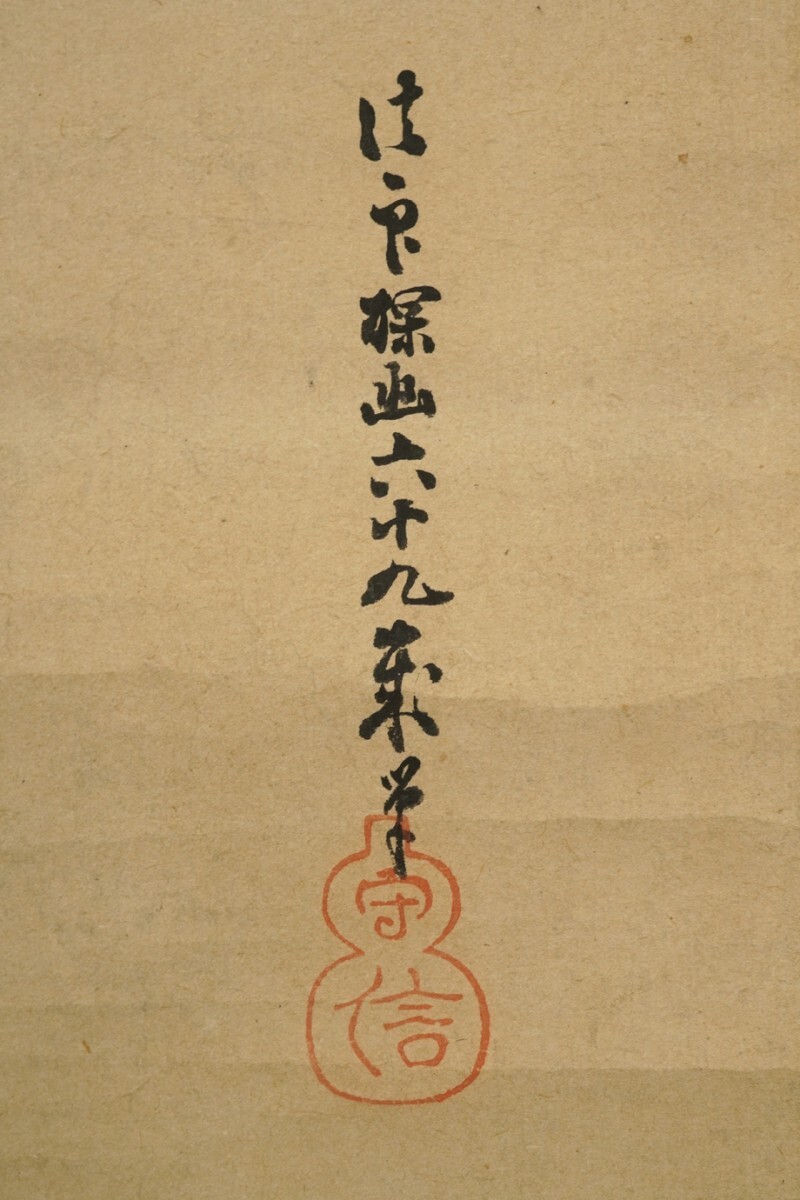 法印探幽六十九歳筆
守信